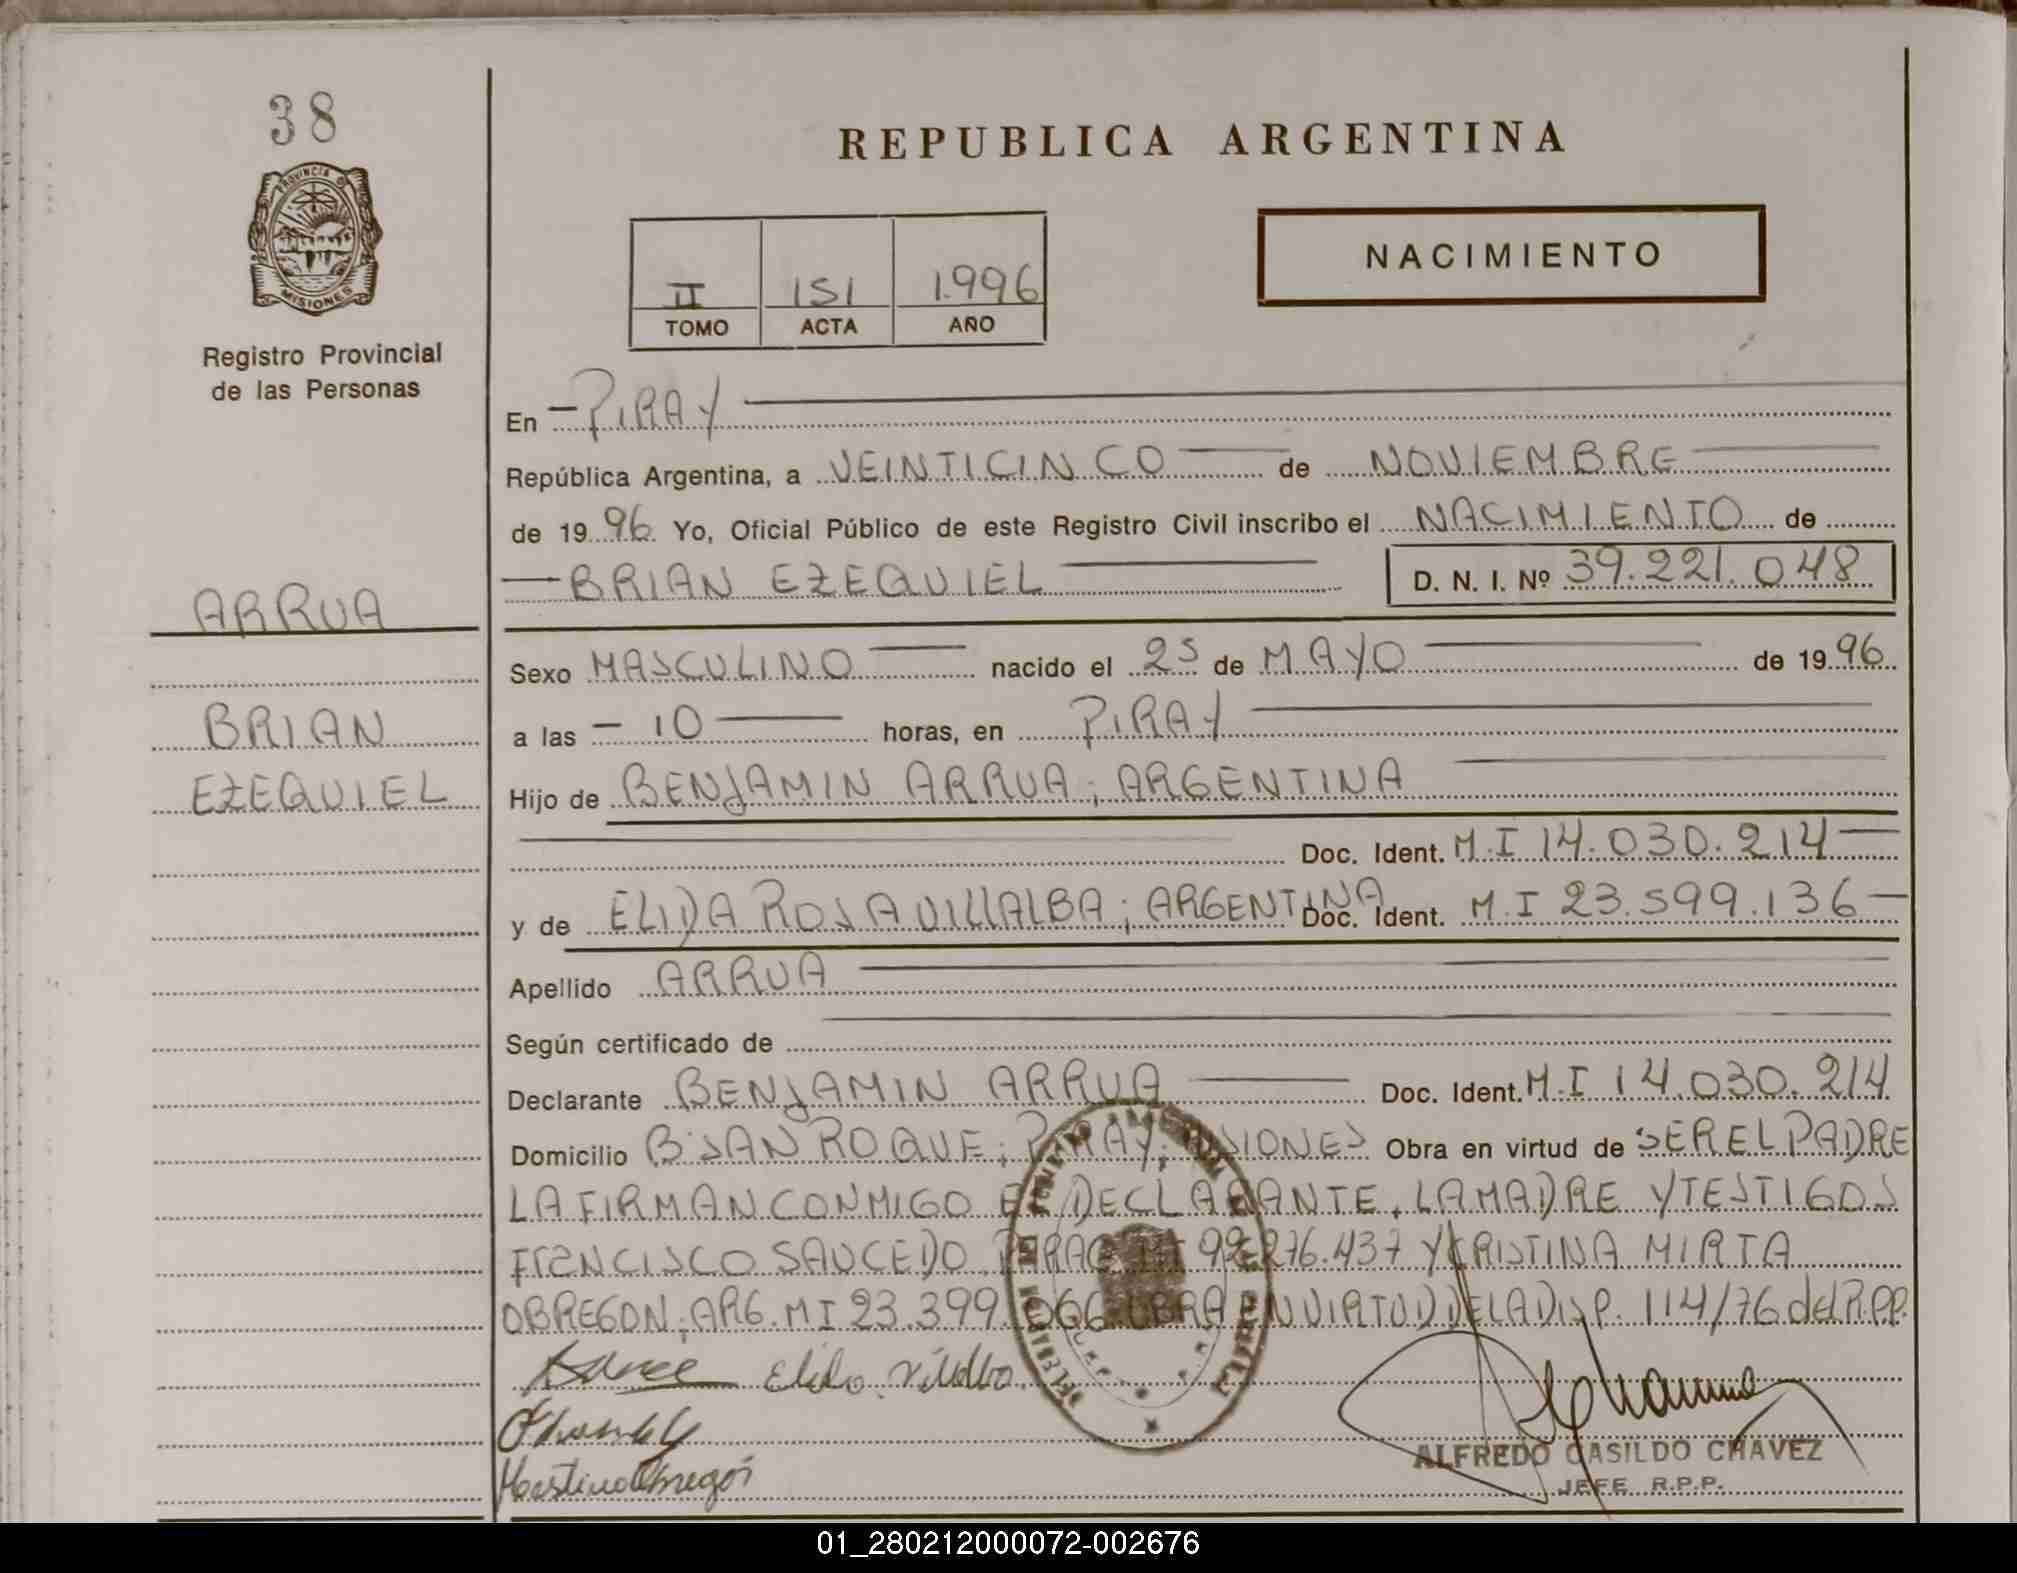 38
PROVINCIA D
MISIONES
Registro Provincial
de las Personas
ARRUA
BRIAN
EZEQUIEL
REPUBLICA ARGENTINA
II 151 1.996
TOMO ACTA AÑO
NACIMIENTO
En PIRAY
República Argentina, a VEINTICINCO de NOVIEMBRE
de 19 96 Yo, Oficial Público de este Registro Civil inscribo el NACIMIENTO de
BRIAN EZEQUIEL D. N. I. Nº 39.221.048
Sexo MASCULINO nacido el 25 de MAYO de 19 96
a las 10 horas, en PIRAY
Hijo de BENJAMIN ARRUA; ARGENTINA
Doc. Ident. M.I 14.030.214
y de ELIDA ROSA VILLALBA; ARGENTINA Doc. Ident. M.I 23.599.136
Apellido ARRUA
Según certificado de
Declarante BENJAMIN ARRUA Doc. Ident. M.I 14.030.214
Domicilio B·SAN ROQUE; PIRAY; MISIONES Obra en virtud de SER EL PADRE
LA FIRMAN CONMIGO EL DECLARANTE, LA MADRE Y TESTIGOS
FRANCISCO SAUCEDO 92.276.437 Y CRISTINA MIRTA
OBREGON; ARG. M I 23.399.066 OBRA EN VIRTUD DE LA DISP. 114/76 del R.P.P.
Elida Villalba
ALFREDO CASILDO CHAVEZ
JEFE R.P.P.
01_280212000072-002676